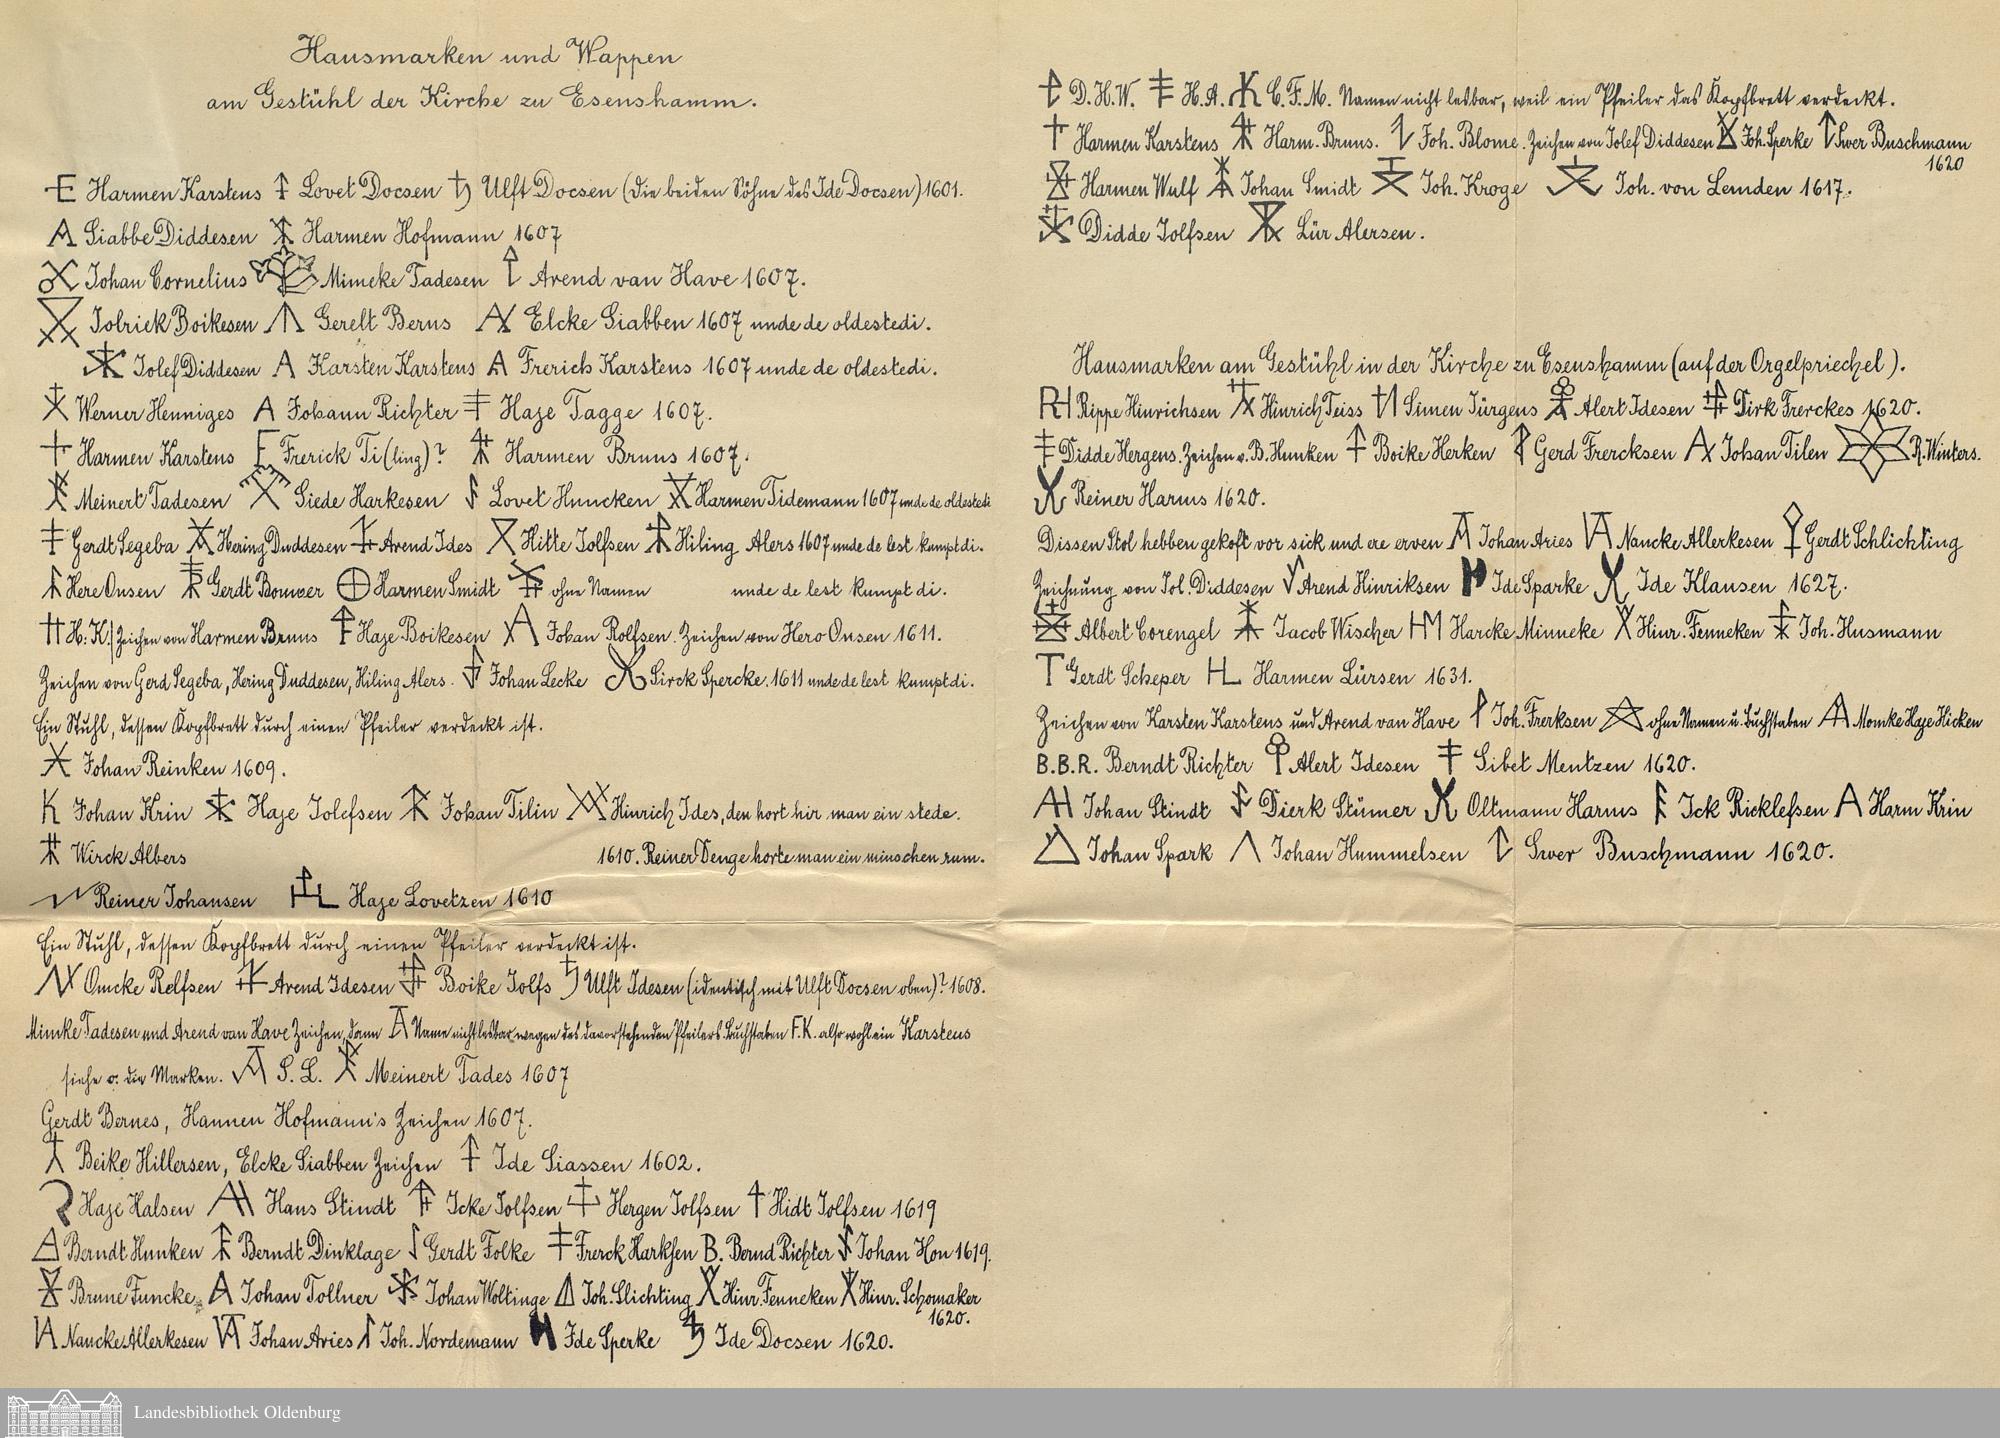 Hausmarken und Wappen
am Gestühl der Kirche zu Esenshamm.
Harmen Karstens Lovet Docsen Ulft Docsen (die beiden Söhne des Ide Docsen) 1601.
Siabbe Diddesen Harmen Hofmann 1607
Johan Cornelius Mimeke Tadesen Arend van Have 1607.
Jolrick Boikesen Gerelt Berns Elcke Siabben 1607 unde de oldestedi.
Jolef Diddesen Karsten Karstens Frerich Karstens 1607 unde de oldestedi.
Werner Henniges Johann Richter Haje Tagge 1607.
Harmen Karstens Frerick Ti(ling)? Harmen Bruns 1607.
Meinert Tadesen Siede Harkesen Lovet Huncken Harmen Tidemann 1607 unde de oldestedi
Gerdt Segeba Hering Duddesen Arend Ides Hitte Jolfsen Hiling Alers 1607 unde de lest kumpt di.
Here Onsen Gerdt Bouwer Harmen Smidt ohne Namen unde de lest kumpt di.
H. K./ Zeichen von Harmen Bruns Haje Boikesen Johan Rolfsen. Zeichen von Hero Onsen 1611.
Zeichen von Gerd Segeba, Hering Duddesen, Hiling Alers. Johan Lecke Sirck Spercke. 1611 unde de lest kumpt di.
Ein Stuhl, dessen Kopfbrett durch einen Pfeiler verdeckt ist.
Johan Reinken 1609.
Johan Krin Haje Jolefsen Johan Tilin Hinrich Ides, den hort hir man ein stede.
Wirck Albers 1610. Reiner Denge horte man ein minschen rum.
Reiner Johansen Haje Lovetzen 1610
Ein Stuhl, dessen Kopfbrett durch einen Pfeiler verdeckt ist.
Omcke Relfsen Arend Idesen Boike Jolfs Ulft Idesen (identisch mit Ulft Docsen oben)? 1608.
Mimke Tadesen und Arend van Have Zeichen, dann Name nicht lesbar wegen des davorstehenden Pfeilers. Buchstaben F. K. also wohl ein Karstens
siehe o. die Marken. S. L. Meinert Tades 1607
Gerdt Bernes, Hannen Hofmann's Zeichen 1607.
Beike Hillersen, Elcke Siabben Zeichen Ide Siassen 1602.
Haje Halsen Hans Stindt Icke Jolfsen Hergen Jolfsen Hidt Jolfsen 1619
Berndt Hunken Berndt Dinklage Gerdt Folke Frerck Harksen B. Bernd Richter Johan Hon 1619.
Brune Funcke Johan Tollner Johan Woltinge Joh. Slichting Hinr. Fenneken Hinr. Schomaker
1620.
Nancke Allerkesen Johan Aries Joh. Nordemann Ide Sperke Ide Docsen 1620.
D. H. W. H. A. C. F. M. Namen nicht lesbar, weil ein Pfeiler das Kopfbrett verdeckt.
Harmen Karstens Harm. Bruns. Joh. Blome. Zeichen von Jolef Diddesen Joh. Sperke Swer Buschmann
1620
Harmen Wulf Johan Smidt Joh. Kroge Joh. von Lemden 1617.
Didde Jolfsen Lür Alersen.
Hausmarken am Gestühl in der Kirche zu Esenshamm (auf der Orgelpriechel).
Rippe Hinrichsen Hinrich Teiss Simen Jürgens Alert Idesen Dirk Frerckes 1620.
Didde Hergens. Zeichen v. B. Hunken Boike Herken Gerd Frercksen Johan Tilen R. Winters.
Reiner Harms 1620.
Dissen Stol hebben gekoft vor sick und ere erven Johan Aries Nancke Allerkesen Gerdt Schlichting
Zeichnung von Jol. Diddesen Arend Hinriksen Ide Sparke Ide Klausen 1627.
Albert Corengel Jacob Wischer Harcke Minneke Hinr. Fenneken Joh. Husmann
Gerdt Scheper Harmen Lürsen 1631.
Zeichen von Karsten Karstens und Arend van Have Joh. Frerksen ohne Namen u. Buchstaben Momke Haje Hicken
B.B.R. Berndt Richter Alert Idesen Sibet Mentzen 1620.
Johan Stindt Dierk Stümer Oltmann Harms Ick Ricklefsen Harm Krin
Johan Spark Johan Hummelsen Swer Buschmann 1620.
Landesbibliothek Oldenburg